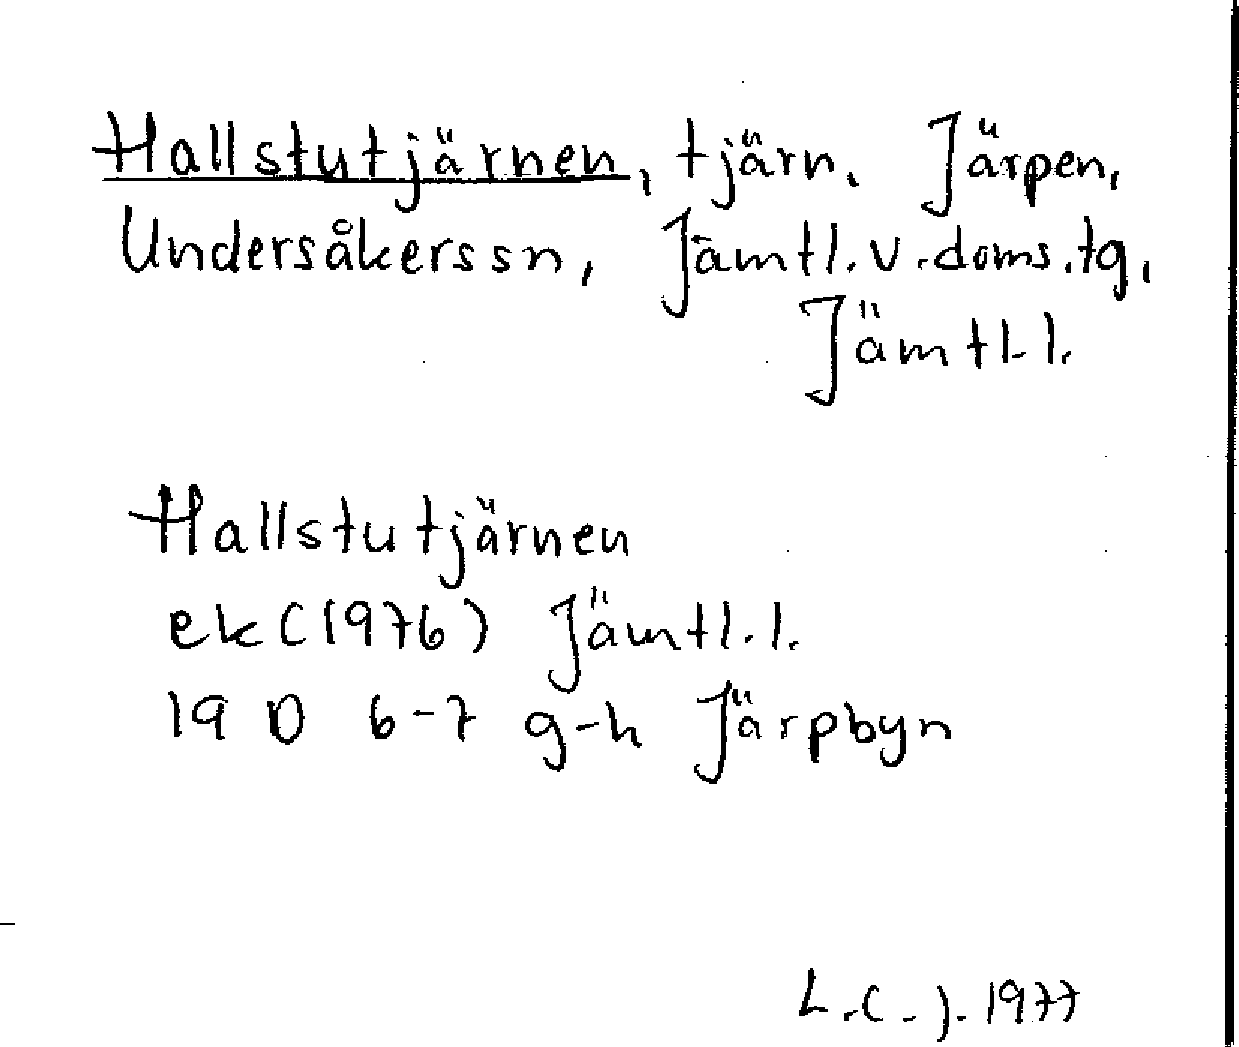 Hallstutjärnen, tjärn. Järpen,
Undersåkers sn, Jämtl. v. doms. tg,
Jämtl. l.
Hallstutjärnen
ek (1976) Jämtl. l.
19 D 6-7 g-h Järpbyn
L.C.J. 1977